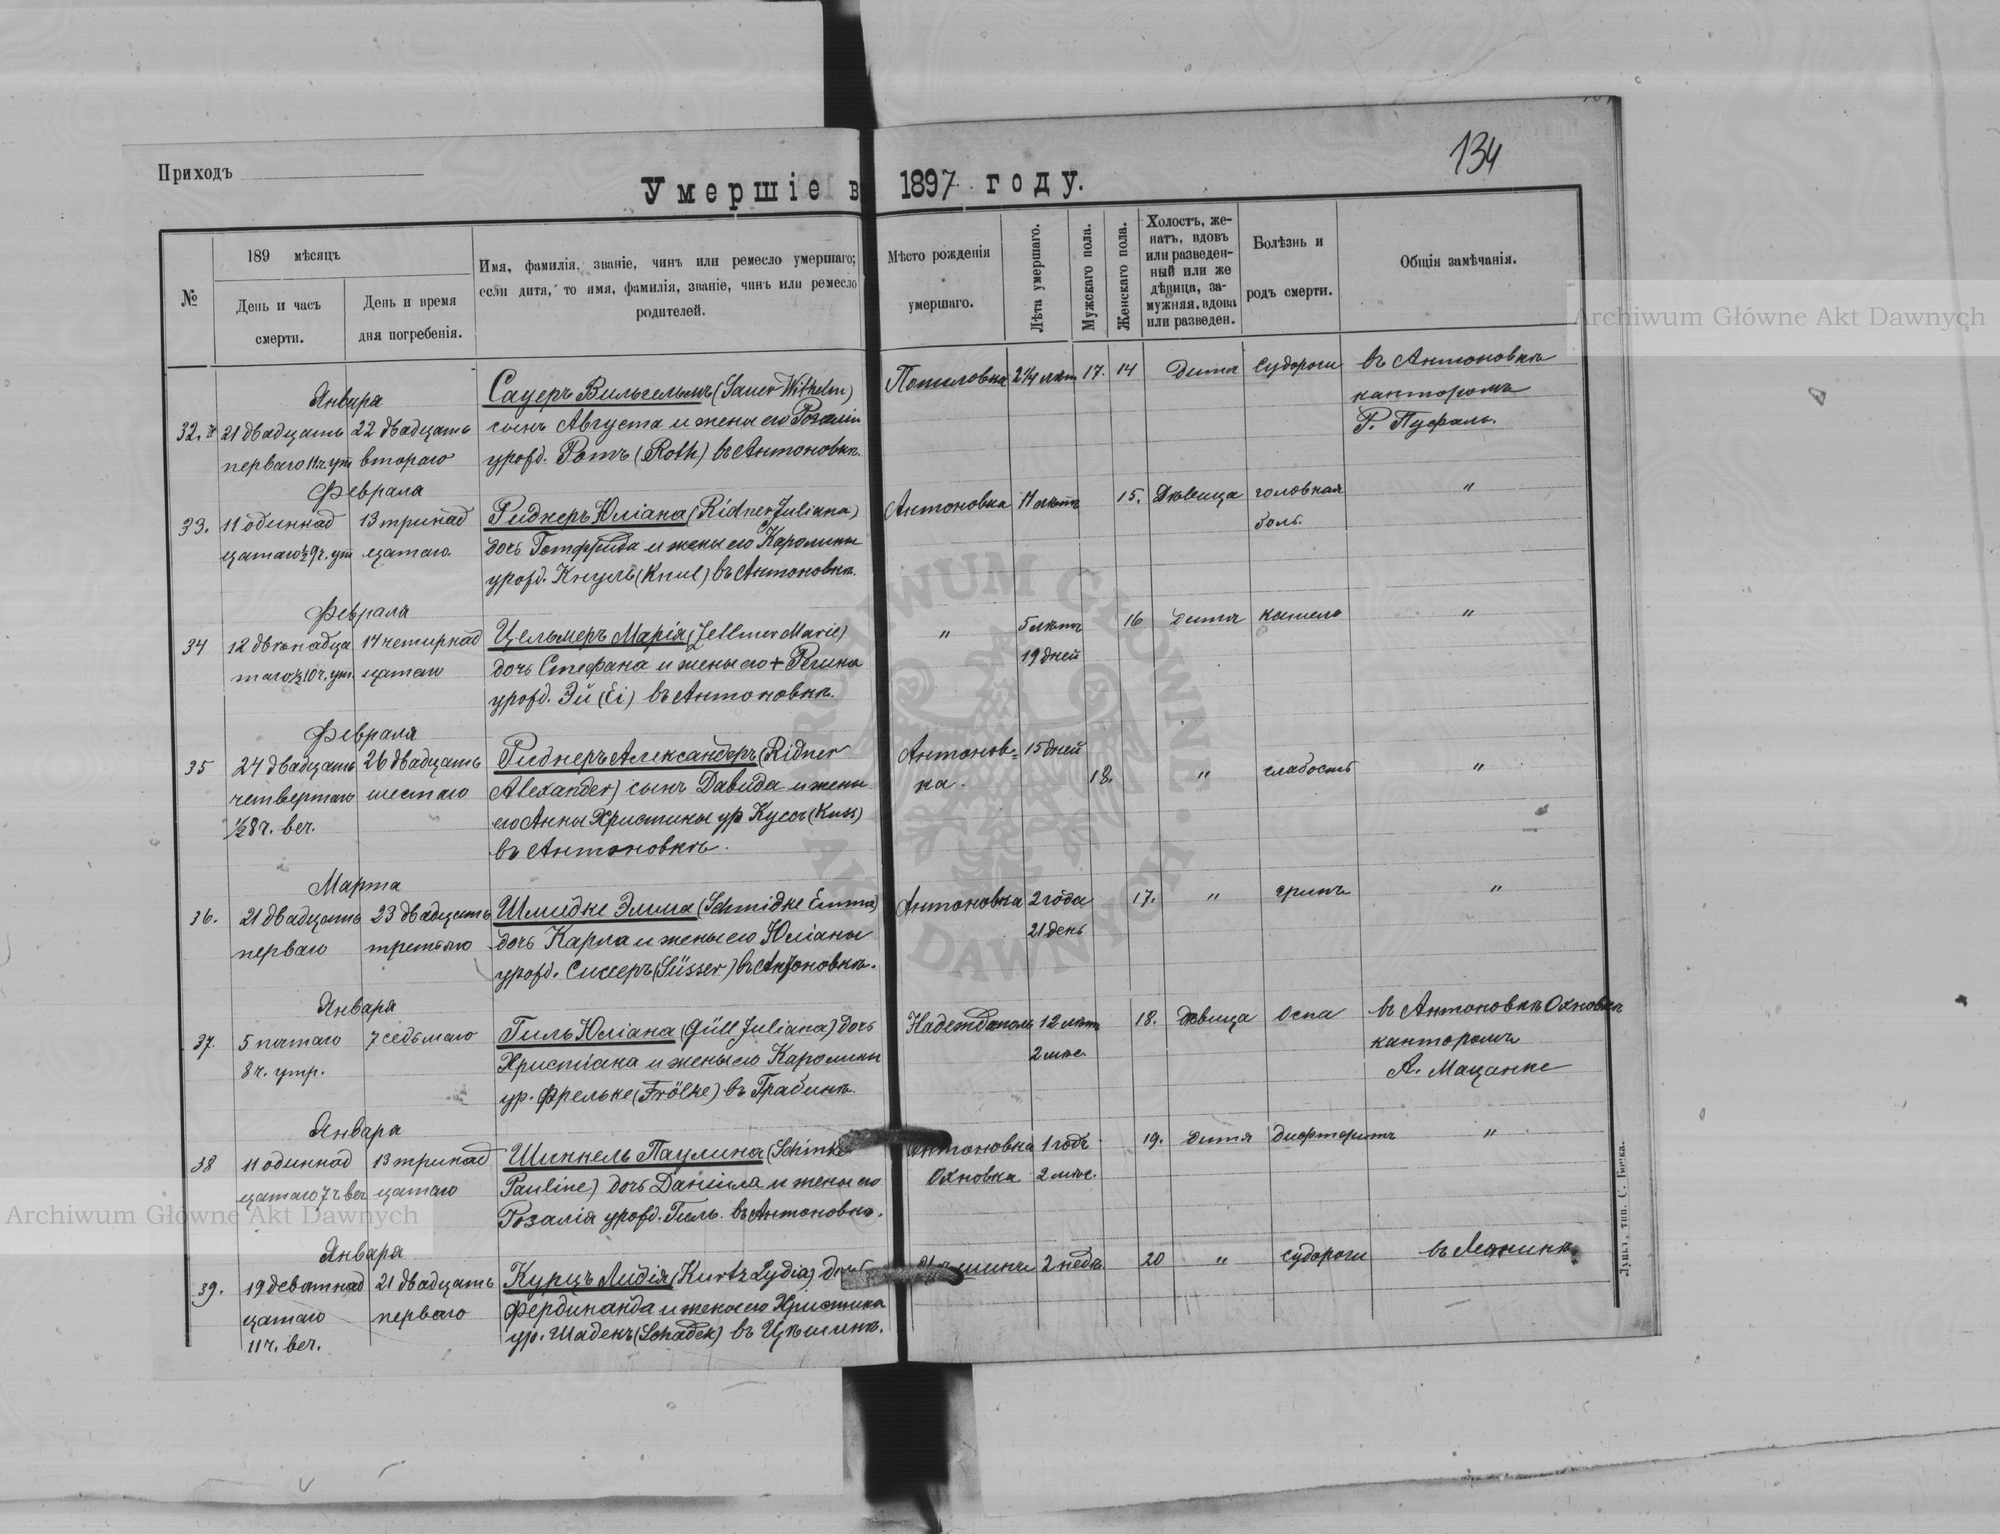 134
Приходъ
Умершіе въ 1897 году.
№
189 мѣсяцъ
День и часъ смерти.
День и время дня погребенія.
Имя, фамилія, званіе, чинъ или ремесло умершаго;
если дитя, то имя, фамилія, званіе, чинъ или ремесло
родителей.
Мѣсто рожденія
умершаго.
Лѣта умершаго.
Мужскаго пола.
Женскаго пола.
Холостъ, же-
натъ, вдовъ
или разведен-
ный или же
дѣвица, за-
мужняя, вдова
или разведен.
Болѣзнь и
родъ смерти.
Общія замѣчанія.
Января
32. 21 двадцать
перваго 11 ч. ут
22 двадцать
втораго
Сауеръ Вильгельмъ (Sauer Wilhelm)
сынъ Августа и жены его Розаліи
урожд. Ротъ (Roth) въ Антоновкѣ.
17. 14
Дитя
судороги
въ Антоновкѣ
канторомъ
Р. Пуфаль.
Февраля
33. 11 одиннад
цатаго ½9 ч. ут
13 тринад
цатаго.
Риднеръ Юліана (Ridner Juliana)
дочь Готфрида и жены его Каролины
урожд. Кнуль (Knul) въ Антоновкѣ.
Антоновка
15.
Дѣвица
головная
боль.
"
Февраля
34 12 двѣнадца
таго ½10 ч. ут.
14 четырнад
цатаго
Цельмеръ Марія (Zellmer Marie)
дочь Стефана и жены его + Регина
урожд. Эй (Ei) въ Антоновкѣ.
"
5 лѣтъ
19 дней
16
Дитя
кашель
"
Февраля
35 24 двадцать
четвертаго
½8 ч. веч.
26 двадцать
шестаго
Риднеръ Александеръ (Ridner
Alexander) сынъ Давида и жены
его Анны Христины ур Куссъ (Kuss)
въ Антоновкѣ.
Антонов-
ка.
15 дней
18.
"
слабость
"
Марта
36. 21 двадцать
перваго
23 двадцать
третьяго
Шмидке Эмма (Schmidke Emma)
дочь Карла и жены его Юліаны
урожд. Сиссеръ (Süsser) въ Антоновкѣ.
Антоновка
2 года
21 день
17.
"
грипъ
"
Января
37. 5 пятаго
8 ч. утр.
7 седьмаго
Гиль Юліана (Güll Juliana) дочь
Христіана и жены его Каролины
ур. Фрельке (Frölke) въ Грабинѣ.
Надеждаполь
12 лѣтъ
2 мѣс.
18.
дѣвица
Оспа
въ Антоновкѣ Охновка
канторомъ
А. Мацанке
Января
38 11 одиннад
цатаго 7 ч веч
13 тринад
цатаго
Шинкель Паулина (Schinkel
Pauline) дочь Даніила и жены его
Розалія урожд. Гиль. въ Антоновкѣ.
Антоновка
Охновка
1 годъ
2 мѣс.
19.
дитя
дифтеритъ
"
Января
39. 19 девятнад
цатаго
11 ч. веч.
21 двадцать
перваго
Курцъ Лидія (Kurtz Lydia) дочь
Фердинанда и жены его Христина
ур. Шадекъ (Schadek) въ Цѣшинѣ.
2 недѣ.
20
"
судороги
Луцкъ, тип. С. Бокса.
Archiwum Główne Akt Dawnych
Archiwum Główne Akt Dawnych
ARCHIWUM GŁÓWNE AKT DAWNYCH